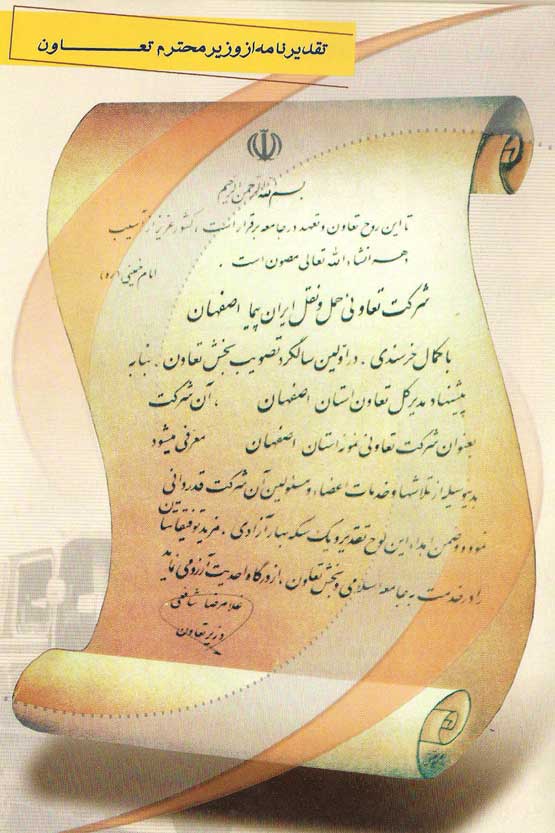 تقدیرنامه از وزیر محترم تعـــــاون
بسم الله الرحمن الرحیم
تا این روح تعاون و تعهد در جامعه برقرار است ، کشور عزیز از آسیب
دهر انشاء الله تعالی مصون است .
امام خمینی (ره)
شرکت تعاونی حمل و نقل ایران پیما اصفهان
با کمال خرسندی ، در اولین سالگرد تصویب بخش تعاون ، بنا به
پیشنهاد مدیر کل تعاون استان اصفهان ، آن شرکت
بعنوان شرکت تعاونی نمونه استان اصفهان معرفی میشود
بدینوسیله از تلاشها و خدمات اعضاء و مسئولین آن شرکت قدردانی
نموده و ضمن اهداء این لوح تقدیر و یک سکه بهار آزادی ، مزید توفیقاتتان
را در خدمت به جامعه اسلامی و بخش تعاون ، از درگاه احدیت آرزو می نماید
غلامرضا شافعی
وزیر تعاون